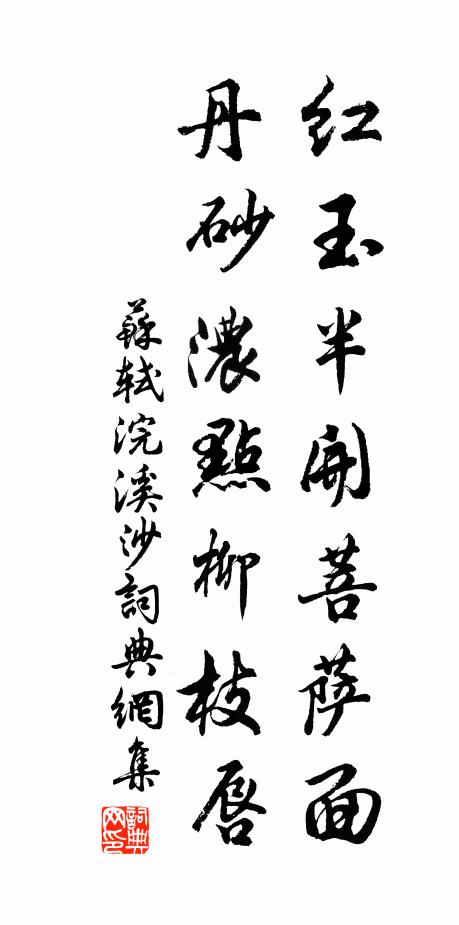 紅玉半開菩薩面
丹砂濃點柳枝唇
蘇軾浣溪沙詞典網集
詞典網印